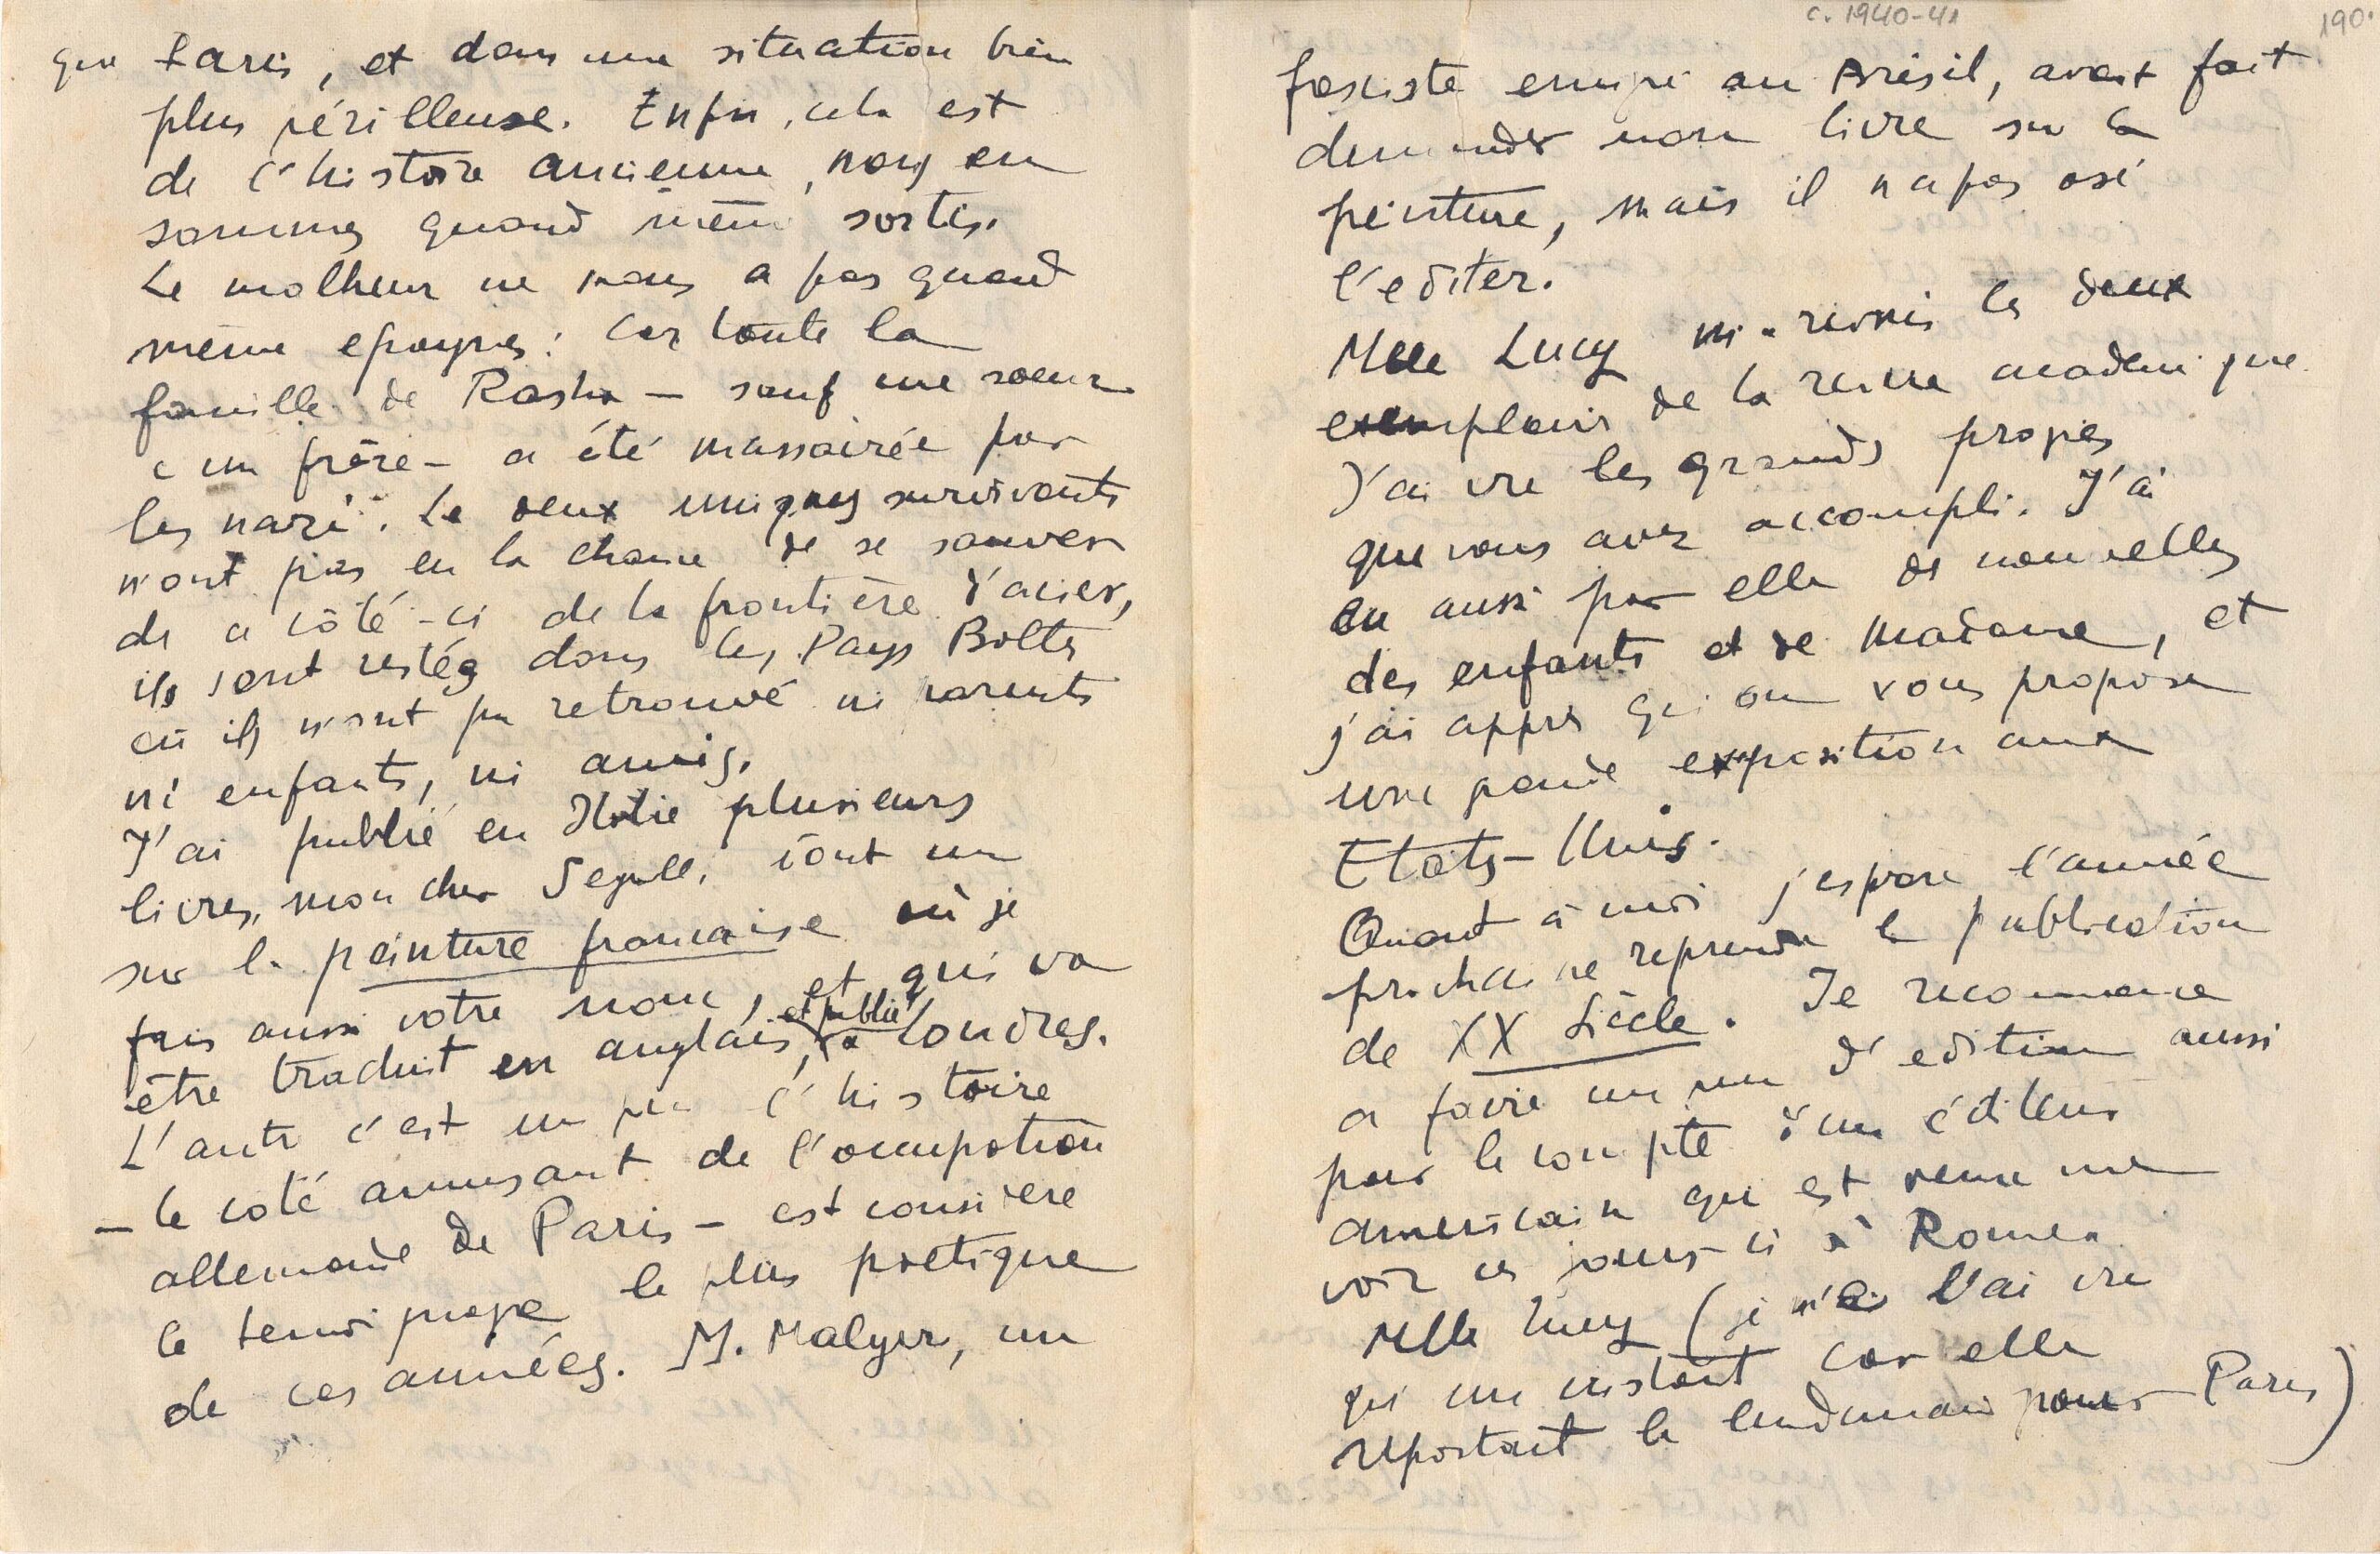 que Paris, et dans une situation bien
plus périlleuse. Enfin, cela est
de l'histoire ancienne, nous en
sommes quand même sortis.
Le malheur ne nous a pas quand
même epargnés: car toute la
famille de Rasha — sauf une soeur
e un frère — a été massacrée par
les nazi. Le deux uniques survivants
n'ont pas eu la chance de se sauver
de ce côté-ci de la frontière d'acier,
ils sont restés dans les Pays Baltes
où ils n'ont pu retrouvé ni parents
ni enfants, ni amis.
J'ai publié en Italie plusieurs
livres, mon cher Segall, dont un
sur la peinture francaise où je
fais aussi votre nom, et qui va
être traduit en anglais, et publié à Londres.
L'autre c'est un peu l'histoire
— le coté amusant de l'occupation
allemande de Paris — est considere
le temoignage le plus poetique
de ces années. M. Malyer, un
c. 1940-41
190.
fasciste emigré au Brésil, avait fait
demander mon livre sur la
peinture, mais il n'a pas osé
l'editer.
Mlle Lucy m'a remis les deux
exemplaires de la revue academique
J'ai vu les grands progres
que vous avez accompli. J'ai
eu aussi par elle de nouvelles
des enfants et de Madame, et
j'ai appris qu'on vous propose
une grande exposition aux
Etats-Unis.
Quant à moi j'espere l'année
prochaine reprendre la publication
de XX Siècle. Je recommence
a faire un peu d'edition aussi
pour le compte d'un éditeur
americain qui est venu me
voir ces jours-ci à Rome.
Mlle Lucy (je n'ai l'ai vu
qu'un instant car elle
repartait le lendemain pour Paris)